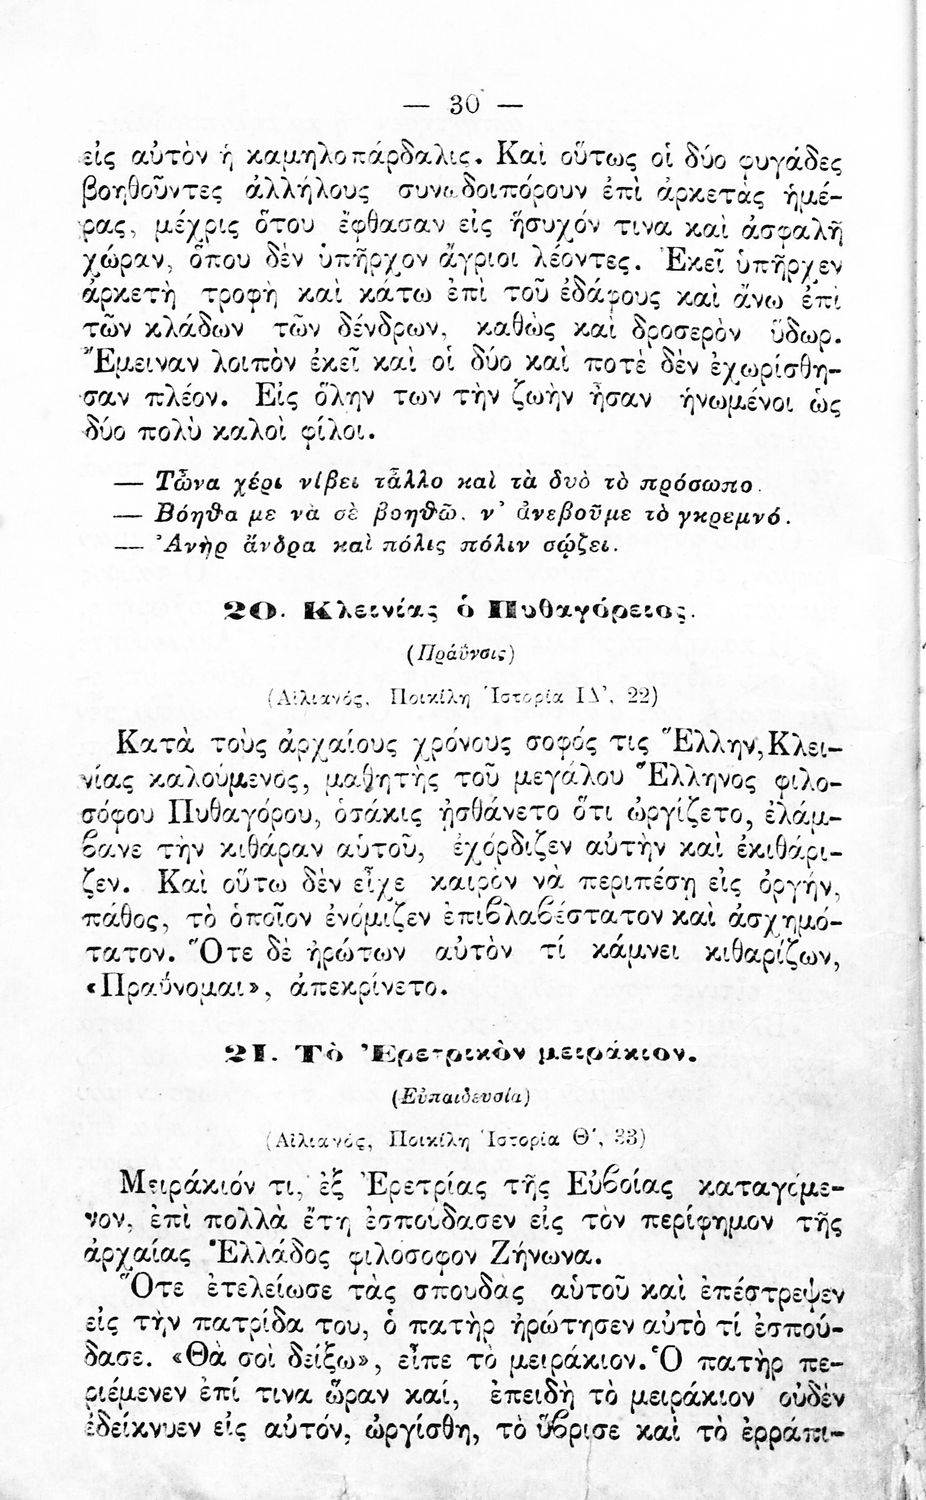 — 30 —
εἰς αὐτὸν ἡ καμηλοπάρδαλις. Καὶ οὕτως οἱ δύο φυγάδες
βοηθοῦντες ἀλλήλους συνωδοιπόρουν ἐπὶ ἀρκετὰς ἡμέ-
ρας, μέχρις ὅτου ἔφθασαν εἰς ἥσυχόν τινα καὶ ἀσφαλῆ
χώραν, ὅπου δὲν ὑπῆρχον ἄγριοι λέοντες. Ἐκεῖ ὑπῆρχεν
ἀρκετὴ τροφὴ καὶ κάτω ἐπὶ τοῦ ἐδάφους καὶ ἄνω ἐπὶ
τῶν κλάδων τῶν δένδρων, καθὼς καὶ δροσερὸν ὕδωρ.
Ἔμειναν λοιπὸν ἐκεῖ καὶ οἱ δύο καὶ ποτὲ δὲν ἐχωρίσθη-
σαν πλέον. Εἰς ὅλην των τὴν ζωὴν ἦσαν ἡνωμένοι ὡς
δύο πολὺ καλοὶ φίλοι.
— Τὦνα χέρι νίβει τἆλλο καὶ τὰ δυὸ τὸ πρόσωπο.
— Βόηθα με νὰ σὲ βοηθῶ, ν' ἀνεβοῦμε τὸ γκρεμνό.
— Ἀνὴρ ἄνδρα καὶ πόλις πόλιν σῴζει.
20. Κλεινίας ὁ Πυθαγόρειος.
(Πράϋνσις)
(Αἰλιανός, Ποικίλη Ἱστορία ΙΔ', 22)
Κατὰ τοὺς ἀρχαίους χρόνους σοφός τις Ἕλλην, Κλει-
νίας καλούμενος, μαθητὴς τοῦ μεγάλου Ἕλληνος φιλο-
σόφου Πυθαγόρου, ὁσάκις ᾐσθάνετο ὅτι ὠργίζετο, ἐλάμ-
βανε τὴν κιθάραν αὑτοῦ, ἐχόρδιζεν αὐτὴν καὶ ἐκιθάρι-
ζεν. Καὶ οὕτω δὲν εἶχε καιρὸν νὰ περιπέσῃ εἰς ὀργήν,
πάθος, τὸ ὁποῖον ἐνόμιζεν ἐπιβλαβέστατον καὶ ἀσχημό-
τατον. Ὅτε δὲ ἠρώτων αὐτὸν τί κάμνει κιθαρίζων,
«Πραΰνομαι», ἀπεκρίνετο.
21. Τὸ Ἐρετρικὸν μειράκιον.
(Εὐπαιδευσία)
(Αἰλιανός, Ποικίλη Ἱστορία Θ', 33)
Μειράκιόν τι, ἐξ Ἐρετρίας τῆς Εὐβοίας καταγόμε-
νον, ἐπὶ πολλὰ ἔτη ἐσπούδασεν εἰς τὸν περίφημον τῆς
ἀρχαίας Ἑλλάδος φιλόσοφον Ζήνωνα.
Ὅτε ἐτελείωσε τὰς σπουδὰς αὑτοῦ καὶ ἐπέστρεψεν
εἰς τὴν πατρίδα του, ὁ πατὴρ ἠρώτησεν αὐτὸ τί ἐσπού-
δασε. «Θὰ σοὶ δείξω», εἶπε τὸ μειράκιον. Ὁ πατὴρ πε-
ριέμενεν ἐπί τινα ὥραν καί, ἐπειδὴ τὸ μειράκιον οὐδὲν
ἐδείκνυεν εἰς αὐτόν, ὠργίσθη, τὸ ὕβρισε καὶ τὸ ἐρράπι-